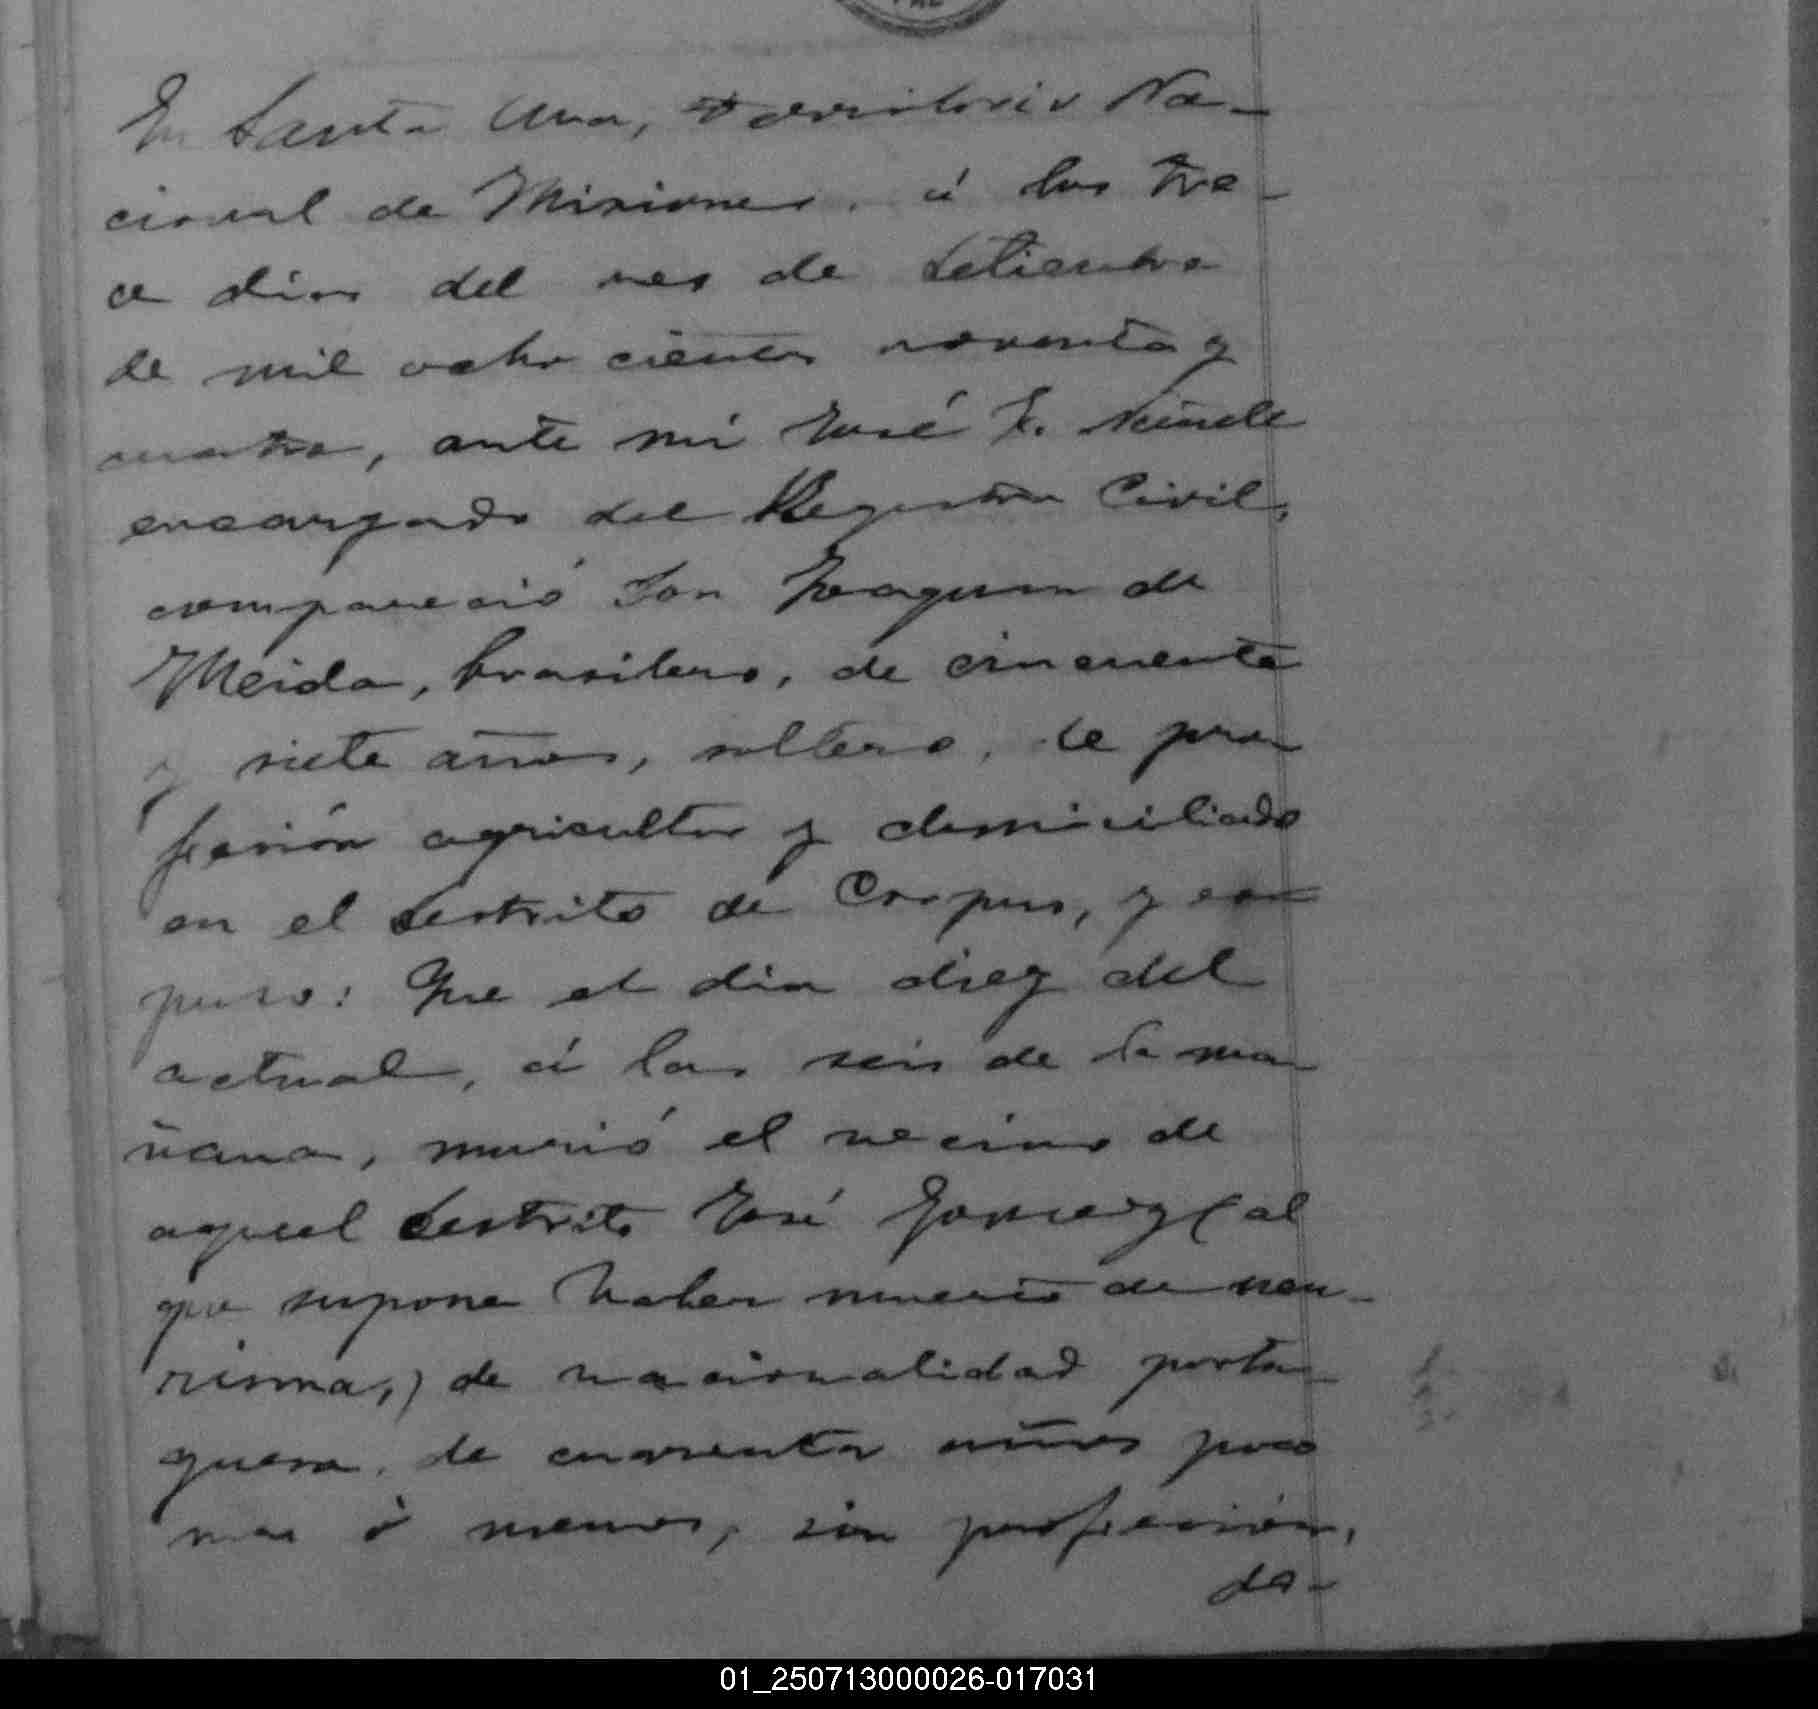 En Santa Ana, Territorio Na-
cional de Misiones, á los tre-
ce dias del mes de Setiembre
de mil ocho cientos noventa y
cuatro, ante mi José E.
encargado del Registro Civil,
compareció Don Joaquin de
Meida, brasilero, de cincuenta
y siete años, soltero, de pro
fesión agricultor y domiciliado
en el destrito de Corpus, y ex
puso: Que el dia diez del
actual, á las seis de la ma
ñana, murió el vecino de
aquel destrito José (al
que supone haber muerto de neu-
risma,) de nacionalidad portu-
guesa, de cuarenta años poco
mas ó menos, sin profesión,
do-
01_250713000026-017031